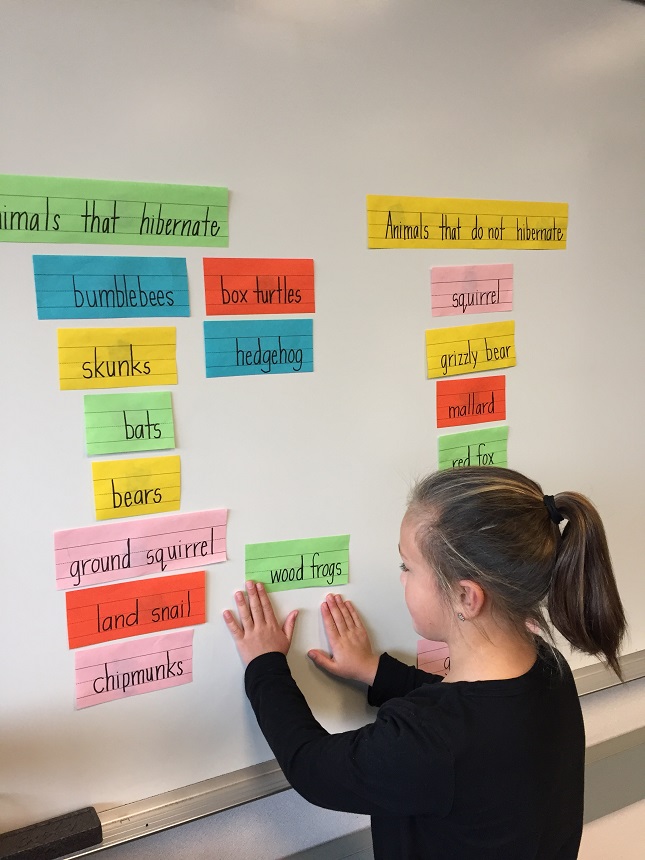 imals that hibernate
bumblebees
skunks
bats
bears
ground squirrel
land snail
chipmunks
box turtles
hedgehog
wood frogs
Animals that do not hibernate
squirrel
grizzly bear
mallard
red fox